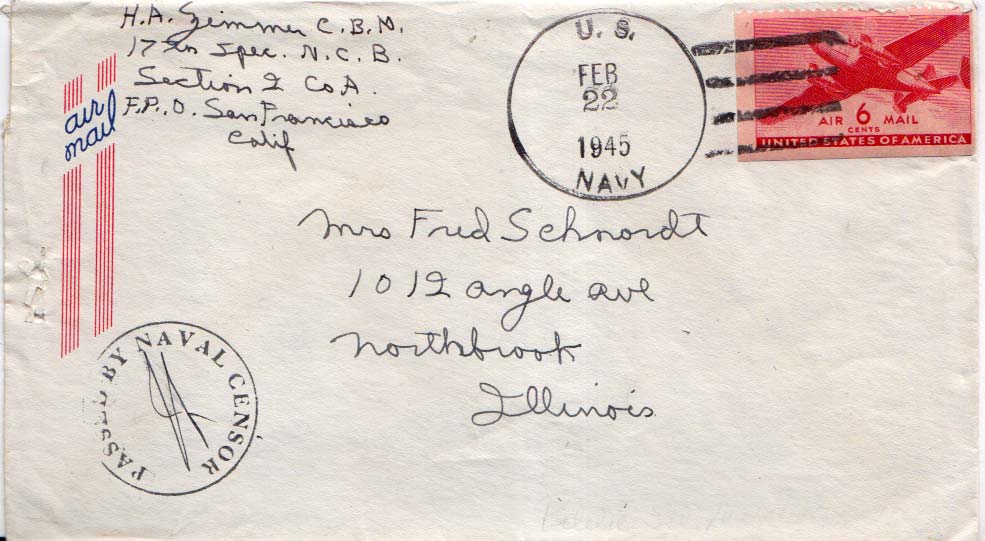 H.A. Zimmer C.B.M.
17th Spec. N.C.B.
Section 2 Co A.
F.P.O. San Francisco
Calif
air
mail
U. S.
FEB
22
1945
NAVY
AIR 6 MAIL
CENTS
UNITED STATES OF AMERICA
Mrs Fred Schnordt
1012 Angle Ave
Northbrook
Illinois
PASSED BY NAVAL CENSOR